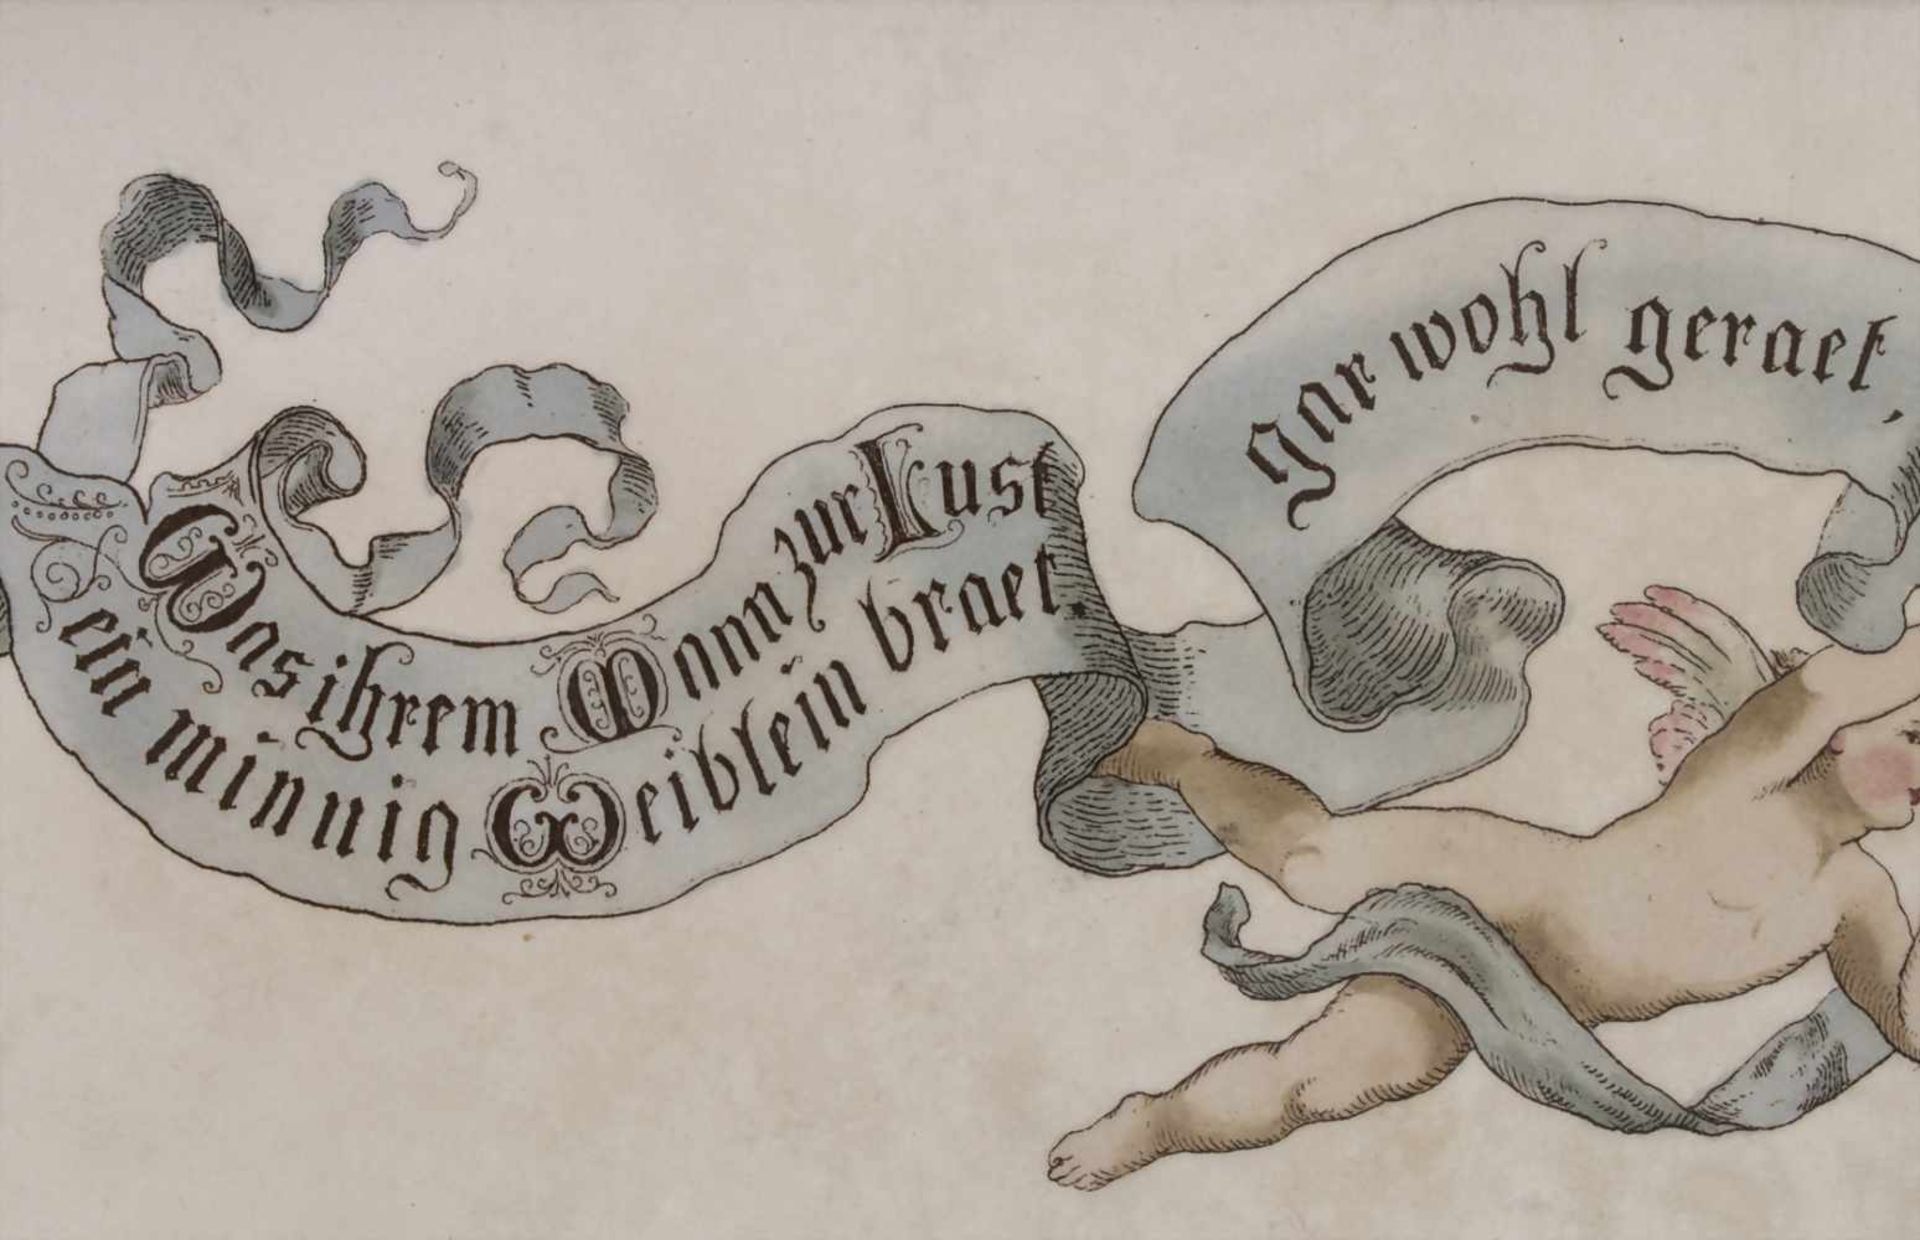 gar wohl geraet,
Was ihrem Mann zur Lust
ein minnig Weiblein braet.